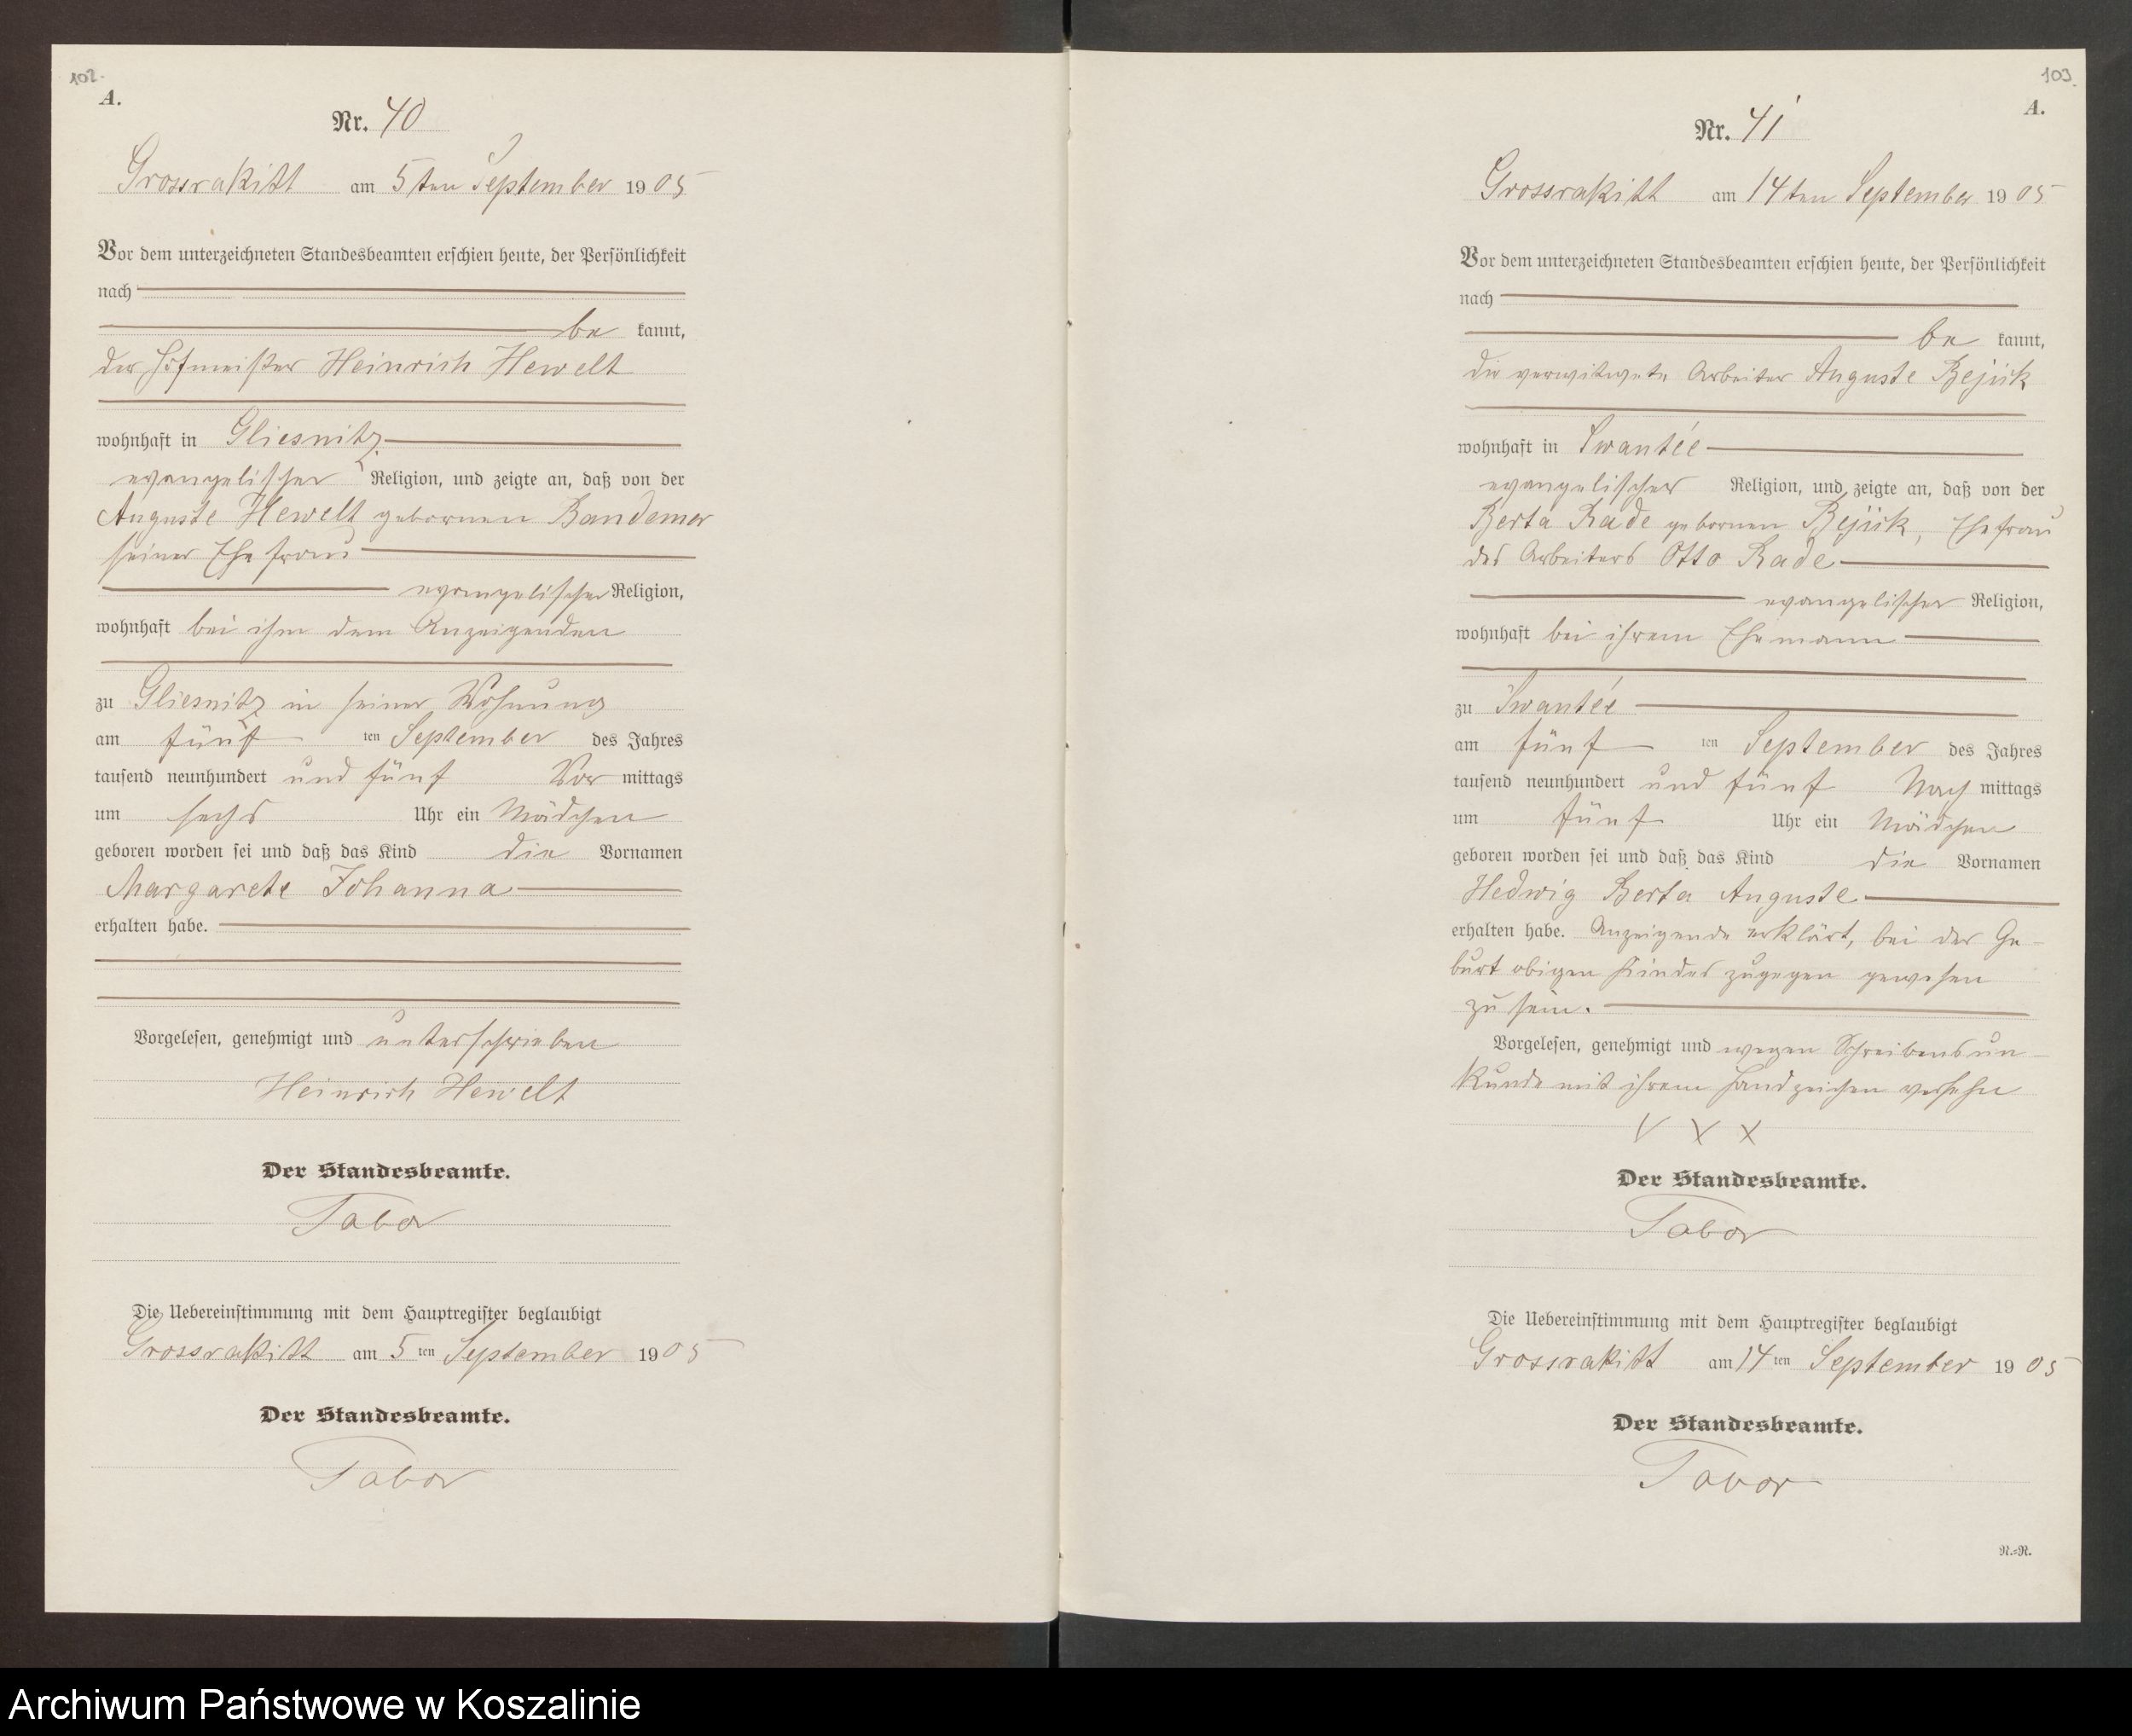 102.
A.
Nr. 40
Grossrakitt am 5ten September 1905
Vor dem unterzeichneten Standesbeamten erschien heute, der Persönlichkeit
nach
be kannt,
der Hofmeister Heinrich Hewelt
wohnhaft in Gliesnitz
evangelischer Religion, und zeigte an, daß von der
Auguste Hewelt gebornen Bandemer
seiner Ehefrau
evangelischer Religion,
wohnhaft bei ihm dem Anzeigenden
zu Gliesnitz in seiner Wohnung
am fünf ten September des Jahres
tausend neunhundert und fünf Vor mittags
um sechs Uhr ein Mädchen
geboren worden sei und daß das Kind die Vornamen
Margarete Johanna
erhalten habe.
Vorgelesen, genehmigt und unterschrieben
Heinrich Hewelt
Der Standesbeamte.
Tabor
Die Uebereinstimmung mit dem Hauptregister beglaubigt
Grossrakitt am 5 ten September 1905
Der Standesbeamte.
Tabor
103.
A.
Nr. 41
Grossrakitt am 14ten September 1905
Vor dem unterzeichneten Standesbeamten erschien heute, der Persönlichkeit
nach
be kannt,
die verwitwete Arbeiter Auguste Bejük
wohnhaft in Swantée
evangelischer Religion, und zeigte an, daß von der
Berta Rade gebornen Bejük, Ehefrau
des Arbeiters Otto Rade
evangelischer Religion,
wohnhaft bei ihrem Ehemann
zu Swantée
am fünf ten September des Jahres
tausend neunhundert und fünf Nach mittags
um fünf Uhr ein Mädchen
geboren worden sei und daß das Kind die Vornamen
Hedwig Berta Auguste
erhalten habe. Anzeigende erklärt, bei der Ge-
burt obigen Kindes zugegen gewesen
zu sein.
Vorgelesen, genehmigt und wegen Schreibensun-
kunde mit ihrem Handzeichen versehn
X X X
Der Standesbeamte.
Tabor
Die Uebereinstimmung mit dem Hauptregister beglaubigt
Grossrakitt am 14 ten September 1905
Der Standesbeamte.
Tabor
N.=R.
Archiwum Państwowe w Koszalinie